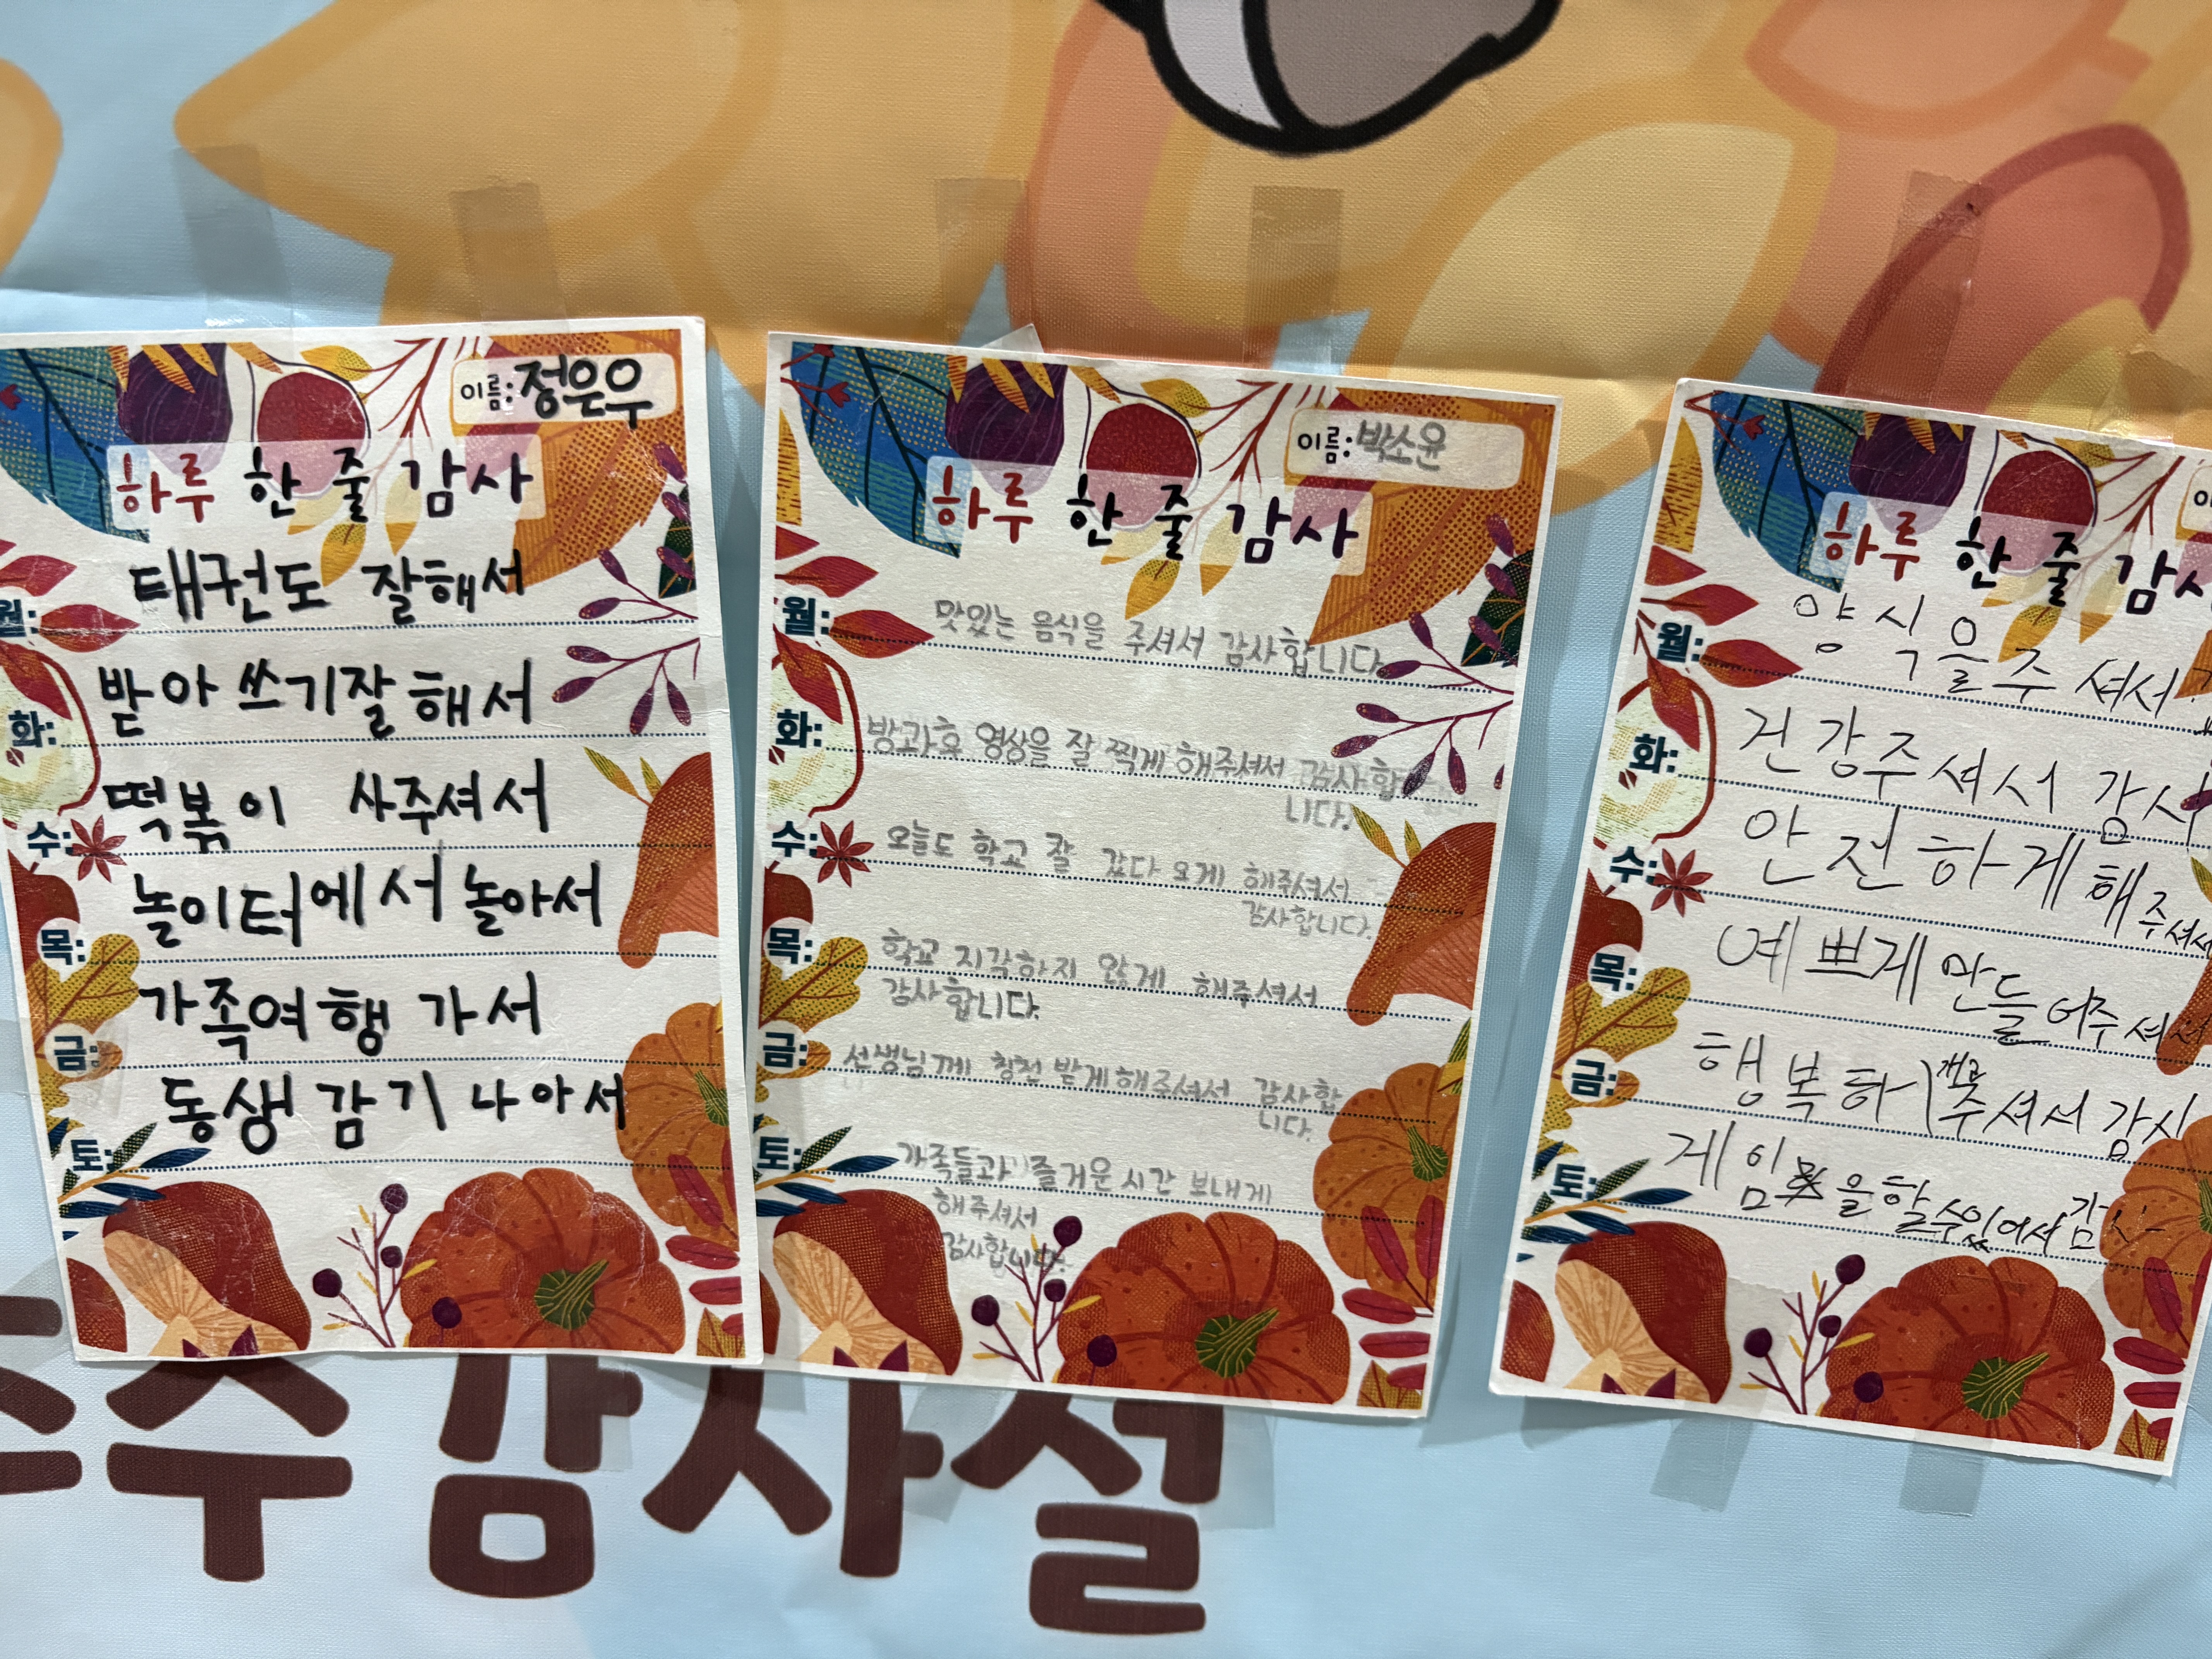 이름: 정은우
하루 한 줄 감사
월: 태권도 잘해서
화: 받아쓰기잘해서
수: 떡볶이 사주셔서
목: 놀이터에서 놀아서
금: 가족여행 가서
토: 동생 감기 나아서
이름: 박소윤
하루 한 줄 감사
월: 맛있는 음식을 주셔서 감사합니다.
화: 방과후 영상을 잘 찍게 해주셔서 감사합
니다.
수: 오늘도 학교 잘 갔다 오게 해주셔서
감사합니다.
목: 학교 지각하지 않게 해주셔서
감사합니다.
금: 선생님께 칭찬 받게해주셔서 감사합
니다.
토: 가족들과 즐거운 시간 보내게
해주셔서
감사합니다.
하루 한 줄 감
월: 양식을 주셔서
화: 건강주셔서 감사
수: 안전하게 해주셔서
목: 예쁘게 만들어주셔
금: 행복하 주셔서 감사
토: 게임을할수있어서 감
수감사절